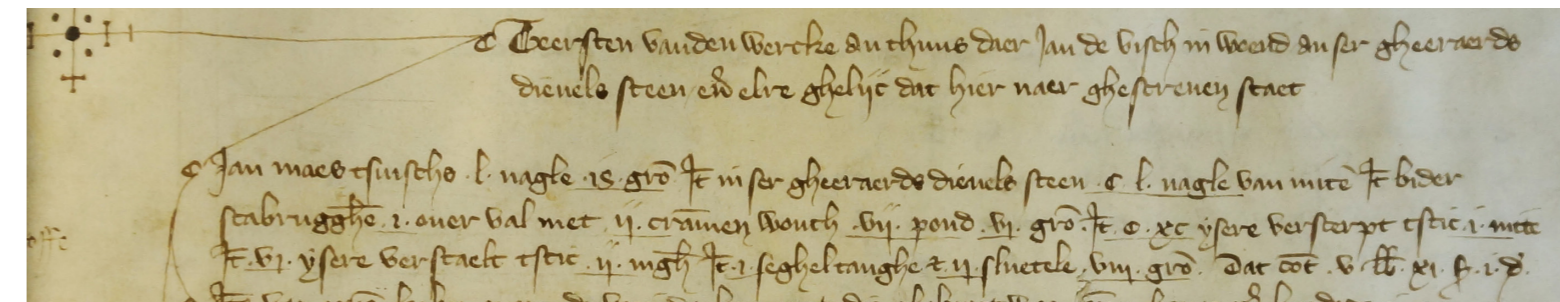 Teersten vanden wercke an thuus daer Jan de visch in woend an ser gheeraerds
dievels steen en̄ elre ghelijc dat hier naer ghescreven staet
Jan maes tsvischs .l. nagle .is. grō Jt̄ in ser gheeraerds dievels steen .c l. nagle van mitē Jt̄ bider
scabrugghē .i. over val met .ij. crāmen wouch .vij. pond .vj. grō. Jt̄ .c. xc ysere versterpt tstic .i. mite
Jt̄ .vj. ysere verstaelt tstic .ij. ingh̄ Jt̄ .i. seghel tanghe & ij sluetele .viij. grō. Dat cōt .v. lb. xj. s. i. d.